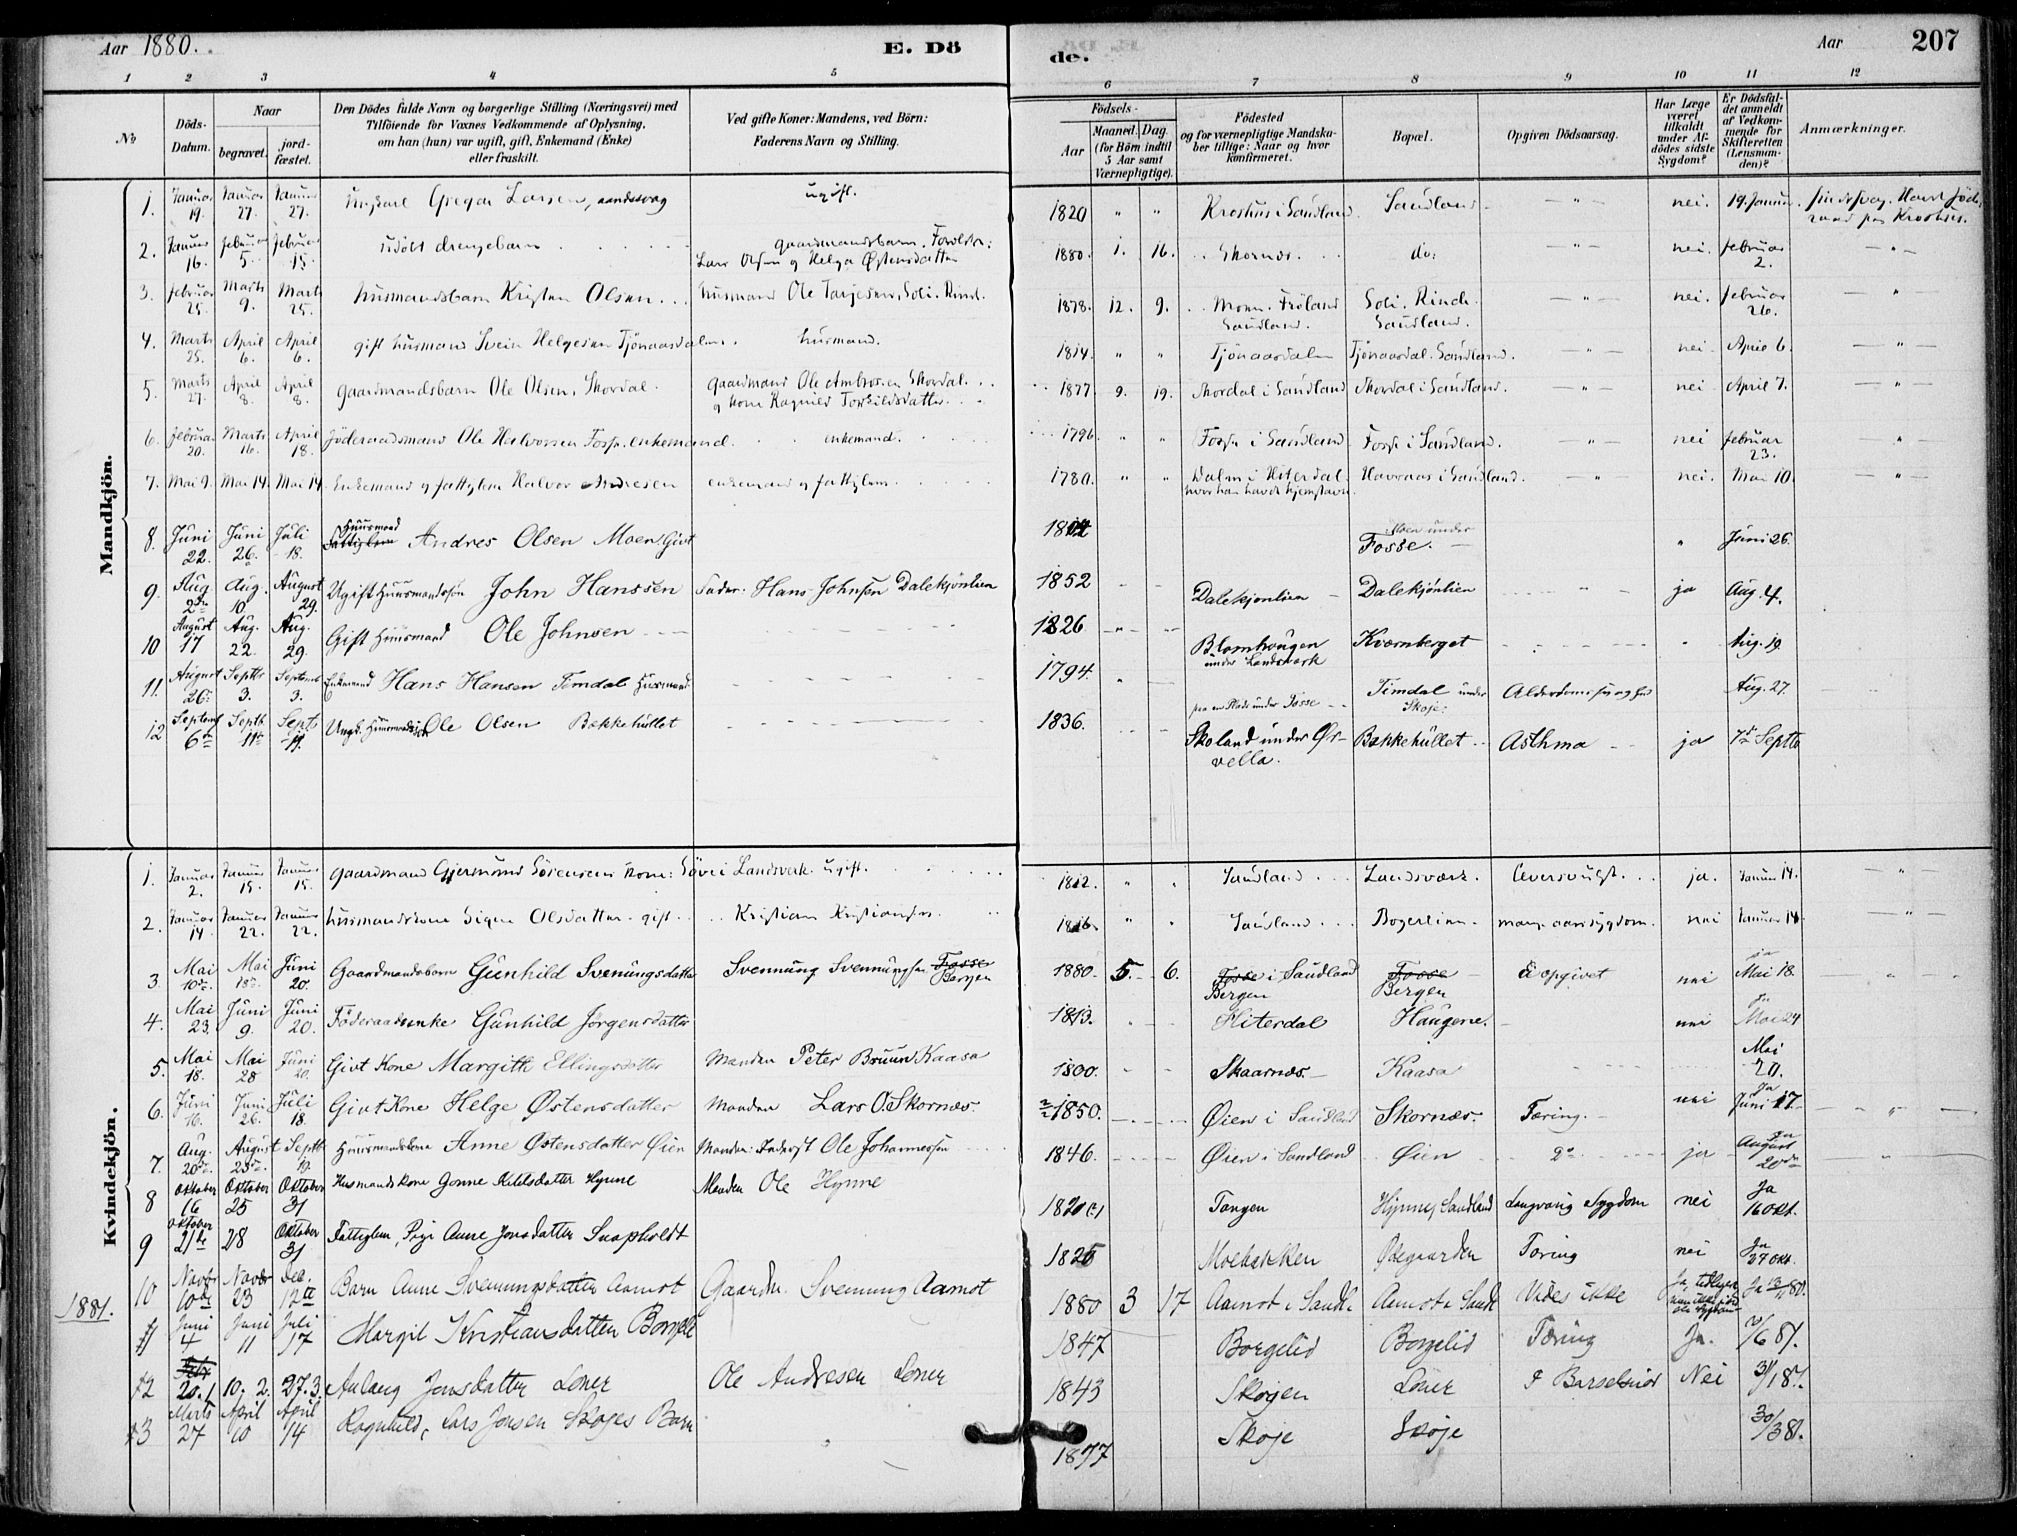 Aar 1880. E. Dö de. Aar 207
1 2 3 4 5 6 7 8 9 10 11 12
No Döds-Datum. Naar begravet. jord-fæstet. Den Dödes fulde Navn og borgerlige Stilling (Næringsvei) med Tilföiende for Voxnes Vedkommende af Oplysning, om han (hun) var ugift, gift, Enkemand (Enke) eller fraskilt. Ved gifte Koner: Mandens, ved Börn: Faderens Navn og Stilling. Födsels- Aar Maaned. Dag. (for Börn indtil 5 Aar samt Værnepligtige). Födested og for værnepligtige Mandskaber tillige: Naar og hvor konfirmeret. Bopæl. Opgiven Dödsaarsag. Har Læge været tilkaldt under Afdödes sidste Sygdom? Er Dödsfaldet anmeldt af Vedkommende for Skifteretten (Lensmanden)? Anmærkninger.
Mandkjön.
1. Januar 19. Januar 27. Januar 27. Ungkarl Gregar Larsen, aandssvag ugift. 1820 " " Kroshus i Sauland. Sauland - " - nei. 19. Januar
2. Januar 16. Februar 5. Februar 15. udöbt drengebarn gaardmandsbarn. Forældre: Lars Olsen og Helga Östensdatter 1880. 1. 16. Skornæs. do: - " - nei. Februar 2. - " -
3. Februar 25. Marts 9. Marts 25. husmandsbarn Kristen Olsen husmand Ole Tarjesen, Soli. Rind. 1878. 12. 9. Moen. Fröland Sauland. Soli. Rinde. Sauland. - " - nei. Februar 26. - " -
4. Marts 25. April 6. April 6. gift husmand Svein Helgesen Tjönaasdalen. husmand. 1814. " " Tjönaasdalen Tjönaasdal. Sauland. - " - nei. April 6. - " -
5. Marts 27. April 8. April 8. gaardmandsbarn Ole Olsen, Skordal. gaardmand Ole Ambrosen Skordal. og kone Ragnild Torkildsdatter. 1877 9. 19. Skordal i Sauland Skordal i Sauland. - " - nei April 7. - " -
6. Februar 20. Marts 16. April 18. föderaadsmand Ole Halvorsen Fosse. enkemand. enkemand. 1796. " " Fosse i Sauland Fosse i Sauland. - " - nei Februar 23. "
7. Mai 9. Mai 14. Mai 14. Enkemand og fattiglem Halvor Andresen enkemand og fattiglem. 1780. " " Dalen i Hiterdal hvor han havde hjemstavn. Havraas i Sauland. - " - nei. Mai 10. - " -
8. Juni 22. Juni 26. Juli 18. Huusmand Fattiglem Andres Olsen Moen. Givt Moen under Fosse. " Juni 26.
9. Aug. 2de Aug. 10. August 29. Ugift Huusmandssøn John Hanssen Fader: Hans Johnsen Dalekjönlien 1852 - - Dalekjonlien Dalekjönlien " ja Aug. 4.
10 August 17 Aug. 22. Aug. 29. Gift Huusmand Ole Johnsen 1826 Blomhaugen under Landsverk Kværnberget Aug. 19.
11. August 26. Septbr 3. Septemb 3. Enkemand Hans Hansen Timdal Huusmand 1794. paa en Plads under Fosse Timdal under Skoje. Aug. 27.
12 Septemb 6te Septb. 11te Septb 19. Ungk. Huusmandssøn Ole Olsen Bakkehullet 1836. Skoland under Ørvella. Bakkehullet Asthma ja 7de Septb
Kvindekjön.
1. Januar 2. Januar 15. Januar 15. gaardmand Gjermund Sörensens kone: Söve i Landsverk. ugift. 1812. " " Sauland Landsværk. ja. Januar 14. - " -
2. Januar 14. Januar 22. Januar 22. huusmandskone Signe Olsdatter. gift. Kristian Kristiansen. 1816. " " Sauland Bogerlien. mang. aarssygdom. nei Januar 14. - " -
3 Mai 10de. Mai 18de. Juni 20. Gaardmandsbarn Gunhild Svenungsdatter Svennung Svennungsen Fosse Bergen 1880. 5. 6. Fosse i Sauland Bergen Fosse Bergen Ei opgivet nei ja Mai 18.
4. Mai 23. Juni 9. Juni 20. Föderaadenke Gunhild Jörgensdatter 1813. Hiterdal Haugene. nei Ja Mai 24
5. Mai 18. Mai 28 Juni 20. Givt Kone Margith Ellingsdatter Manden Peter Bruun Kaasa 1800. Skaarnæs. Kaasa Mai 20.
6. Juni 16. Juni 26. Juli 18. Givt Kone Helge Østensdatter Manden Lars O. Skornæs. 1850. Øien i Sauland Skornæs. Tæring. nei Ja Juni 17.
7. Aug. 20de. August 25de. Septb 19. Huusmandskone Anne Østensdatter Øien Manden: Inderst Ole Johannessen 1846. Øien i Sauland Øien Do ja Ja August 20de
8 Oktober 16 Oktober 25 Oktober 31 Husmandskone Gonne Kittilsdatter Hynne Manden Ole Hynne Tangen Hynne, Sauland Langvarig Sygdom nei Ja 16 Okt.
9 Oktober 21de 28 Oktober 31 Fattiglem, Pige Anne Jonsdatter Snapholdt 1825 Moebakken Ødegaarden Tæring nei Ja 27 Okt.
10 Novbr 10de Novbr 23 Dec. 12te Barn Anne Svenningsdatter Aamot Gaardm. Svenning Aamot 1880 3 17 Aamot i Saudl. Aamot i Saudl Vides ikke Ja
1881. 11 Juni 4 Juni 11 Juli 17 Margit Kristiansdatter Borgelid 1847 Borgelid Borgelid Tæring Ja. /6 81.
12 20. 1 10. 2. 27. 3 Aslaug Jonsdatter Löner Ole Andresen Löner 1843 Skogen Löner I Barselnöd Nei 31/1 81.
13 Marts 27 April 10 April 14 Ragnhild, Lars Jonsen Skojes Barn 1877 Skoje Skoje 30/3 81.